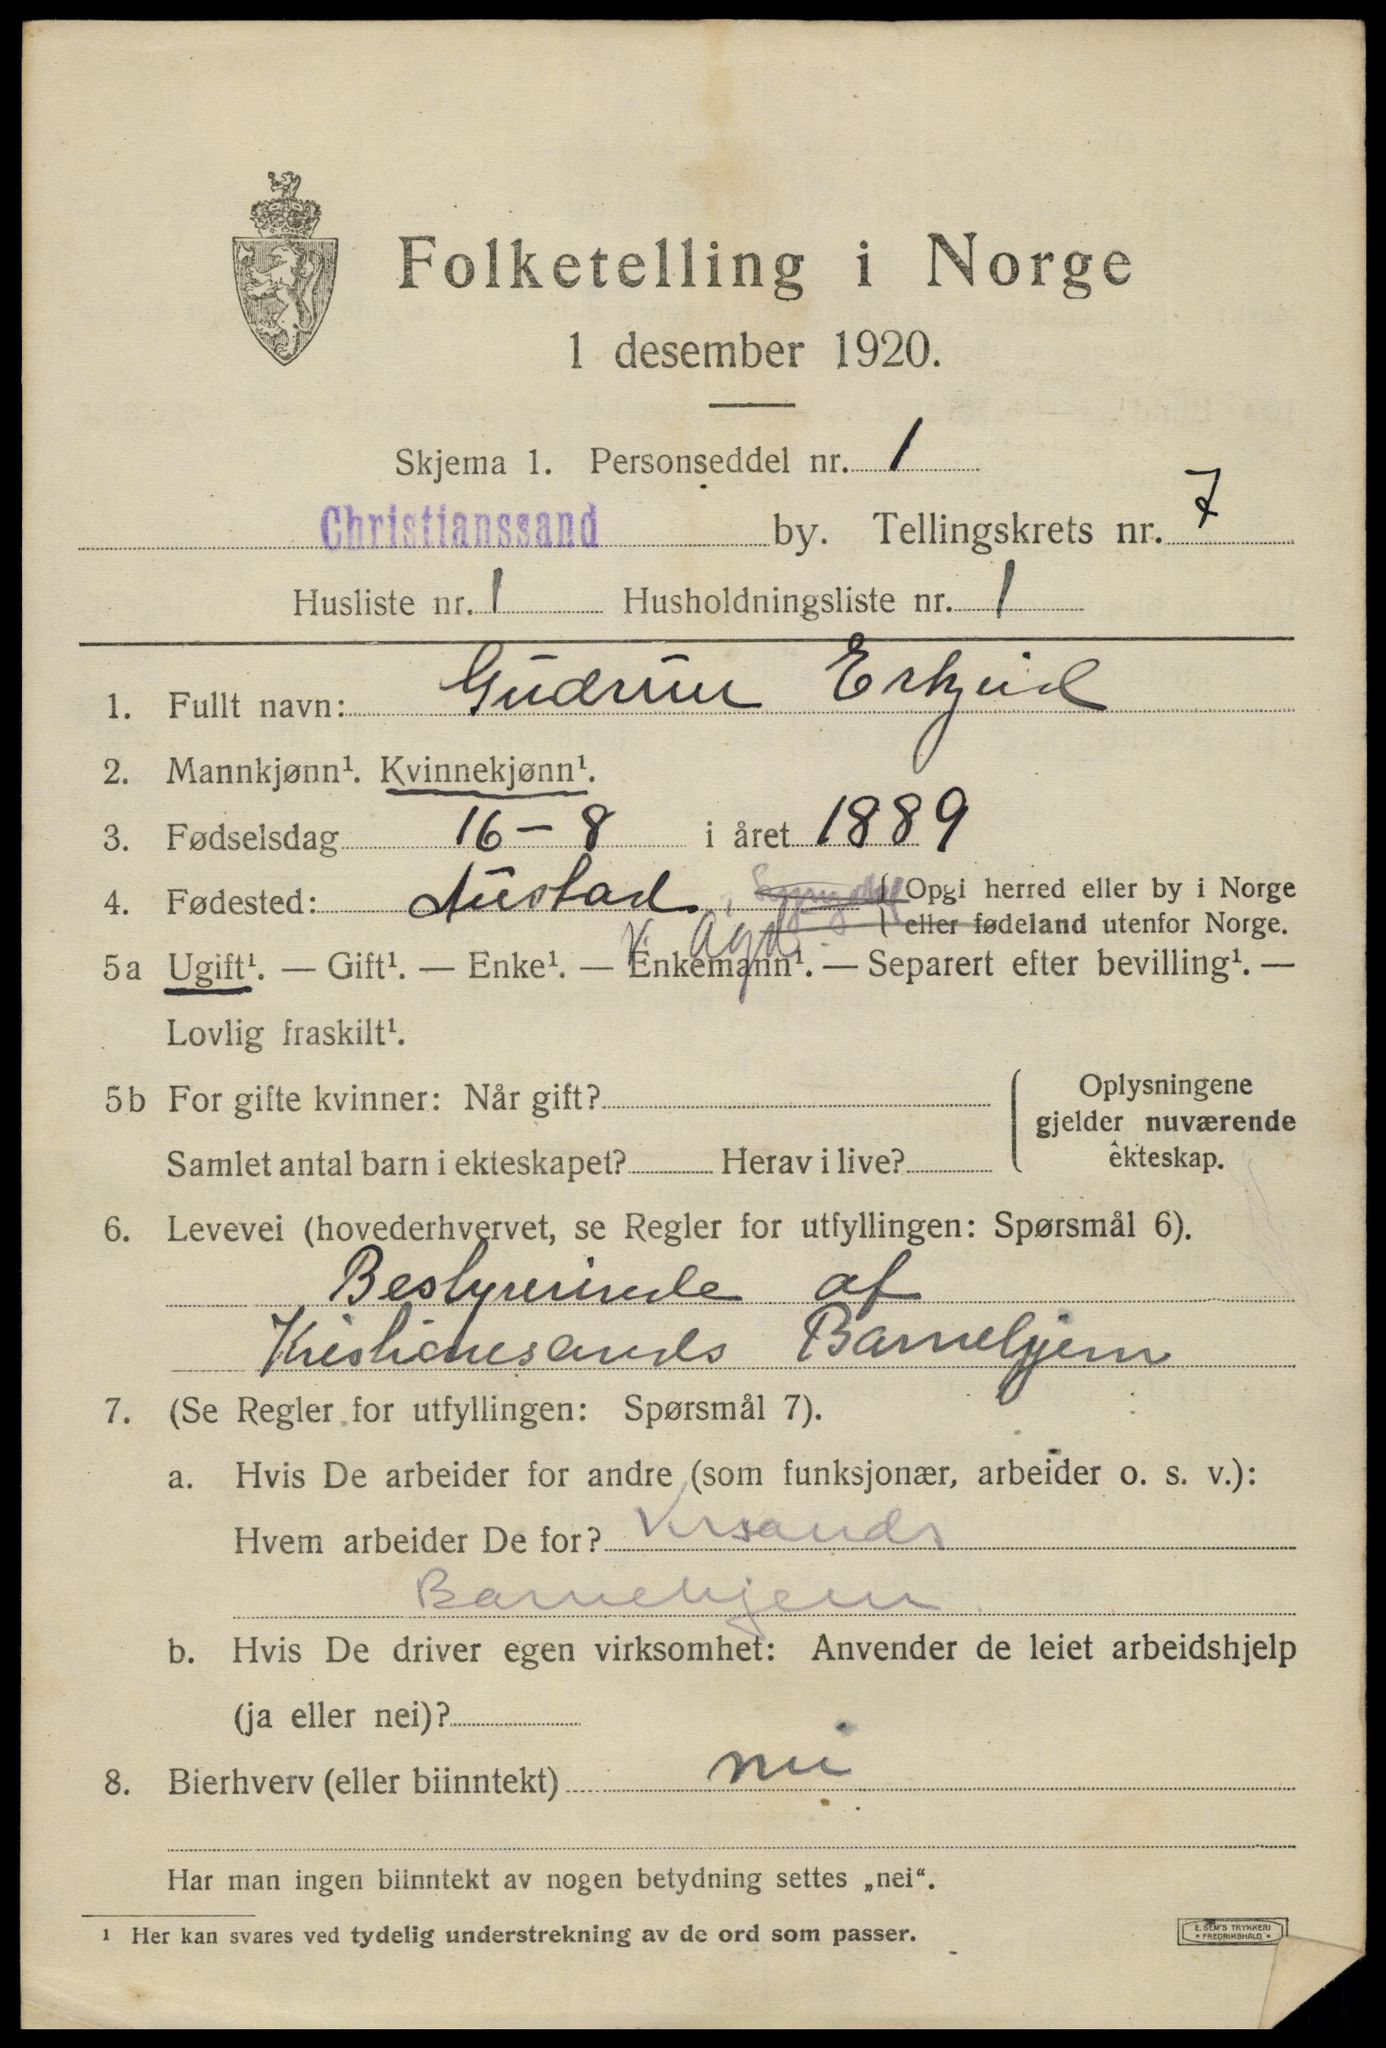 Folketelling i Norge
1 desember 1920.
Skjema 1. Personseddel nr. 1
Christianssand by. Tellingskrets nr. 7
Husliste nr. 1 Husholdningsliste nr. 1
1. Fullt navn: Gudrun
2. Mannkjønn¹. Kvinnekjønn¹.
3. Fødselsdag 16-8 i året 1889
4. Fødested: Austad, { Opgi herred eller by i Norge
eller fødeland utenfor Norge.
V. Agd.
5a Ugift¹. — Gift¹. — Enke¹. — Enkemann¹. — Separert efter bevilling¹. —
Lovlig fraskilt¹.
5b For gifte kvinner: Når gift? Oplysningene
gjelder nuværende
Samlet antal barn i ekteskapet? Herav i live? ekteskap.
6. Levevei (hovederhvervet, se Regler for utfyllingen: Spørsmål 6).
Bestyrerinde af
Kristianssands Barnehjem
7. (Se Regler for utfyllingen: Spørsmål 7).
a. Hvis De arbeider for andre (som funksjonær, arbeider o. s. v.):
Hvem arbeider De for? Krsands
Barnehjem
b. Hvis De driver egen virksomhet: Anvender de leiet arbeidshjelp
(ja eller nei)?
8. Bierhverv (eller biinntekt) nei
Har man ingen biinntekt av nogen betydning settes „nei“.
1 Her kan svares ved tydelig understrekning av de ord som passer.
E. SEM'S TRYKKERI
FREDRIKSHALD